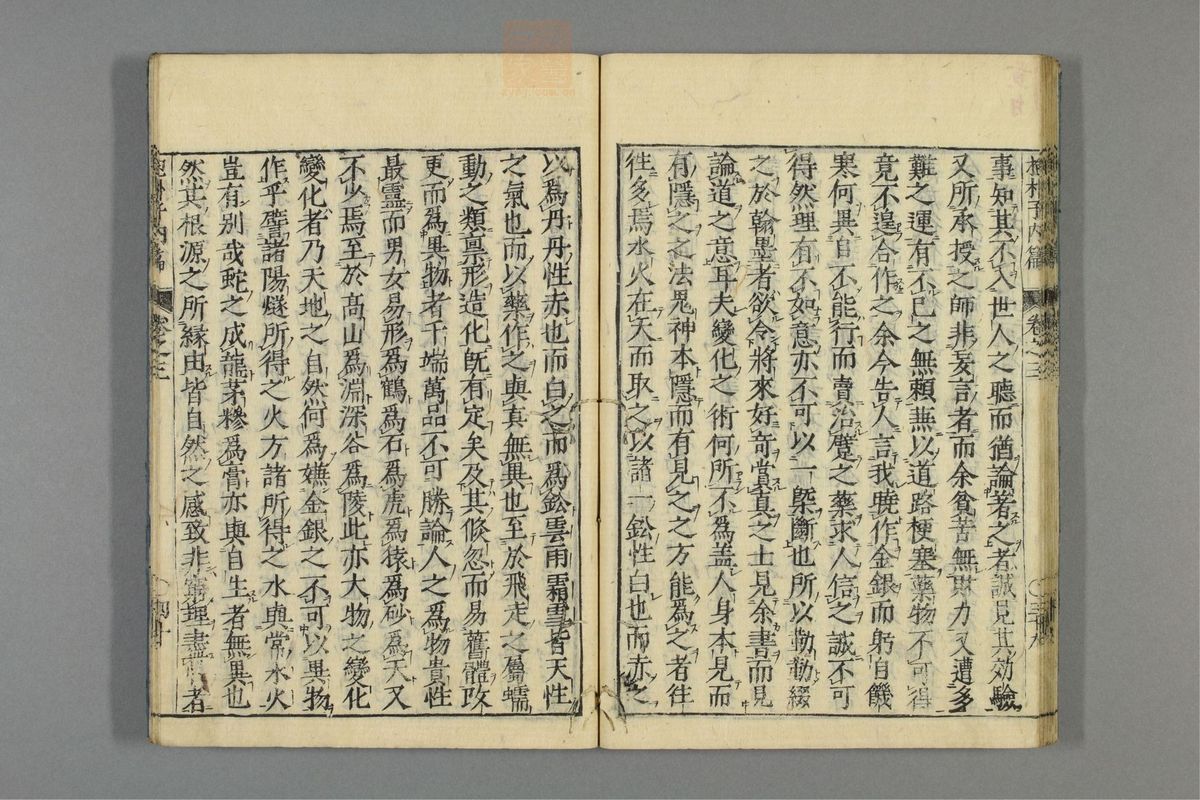 抱朴子內篇 卷之三 三十九
事知其不入世人之聽而猶論著之者誠見其効驗
又所承授之師非妄言者而余貧苦無財力又遭多
難之運有不已之無賴兼以道路梗塞藥物不可得
竟不遑合作之余今告人言我曉作金銀而躬自饑
寒何異自不能行而賣治躄之藥求人信之誠不可
得然理有不如意亦不可以一槩斷也所以勤勤綴
之於翰墨者欲令將來好奇賞真之士見余書而見
論道之意耳夫變化之術何所不為盖人身本見而
有隱之之法鬼神本隱而有見之之方能為之者往
往多焉水火在天而取之以諸一鈆性白也而赤之
以為丹丹性赤也而白之而為鈆雲雨霜雪皆天性
之氣也而以藥作之與真無異也至於飛走之屬蠕
動之類禀形造化既有定矣及其倐忽而易舊體改
更而為異物者千端萬品不可勝論人之為物貴性
最靈而男女易形為鶴為石為虎為猿為砂為天又
不少焉至於髙山為淵深谷為陵此亦大物之變化
變化者乃天地之自然何為嫌金銀之不可以異物
作乎譬諸陽燧所得之火方諸所得之水與常水火
豈有別㦲蛇之成龍茅糝為膏亦與自生者無異也
然其根源之所縁由皆自然之感致非窮理盡者
抱朴子內篇 卷之三 四十